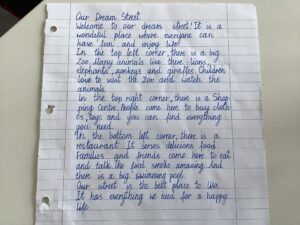 Our Dream Street
Welcome to our dream street! It is a
wonderful place where everyone can
have fun and enjoy life!
In the top left corner, there is a big
Zoo. Many animals live there - lions,
elephants, monkeys and giraffes. Children
love to visit the zoo and watch the
animals.
In the top right corner, there is a Shop
ping Centre. People come here to buy
es, toys and you can find everything
you need.
In the bottom left corner, there is a
restaurant. It serves delicious food.
Families and friends come here to eat
and talk. The food smells amazing. And
there is a big swimming pool.
Our street is the best place to live.
It has everything we need for a happy
life.